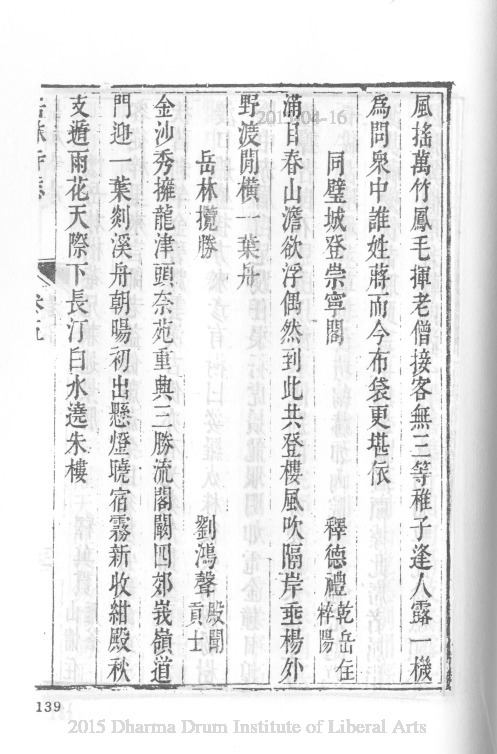 風搖萬竹鳳毛揮老僧接客無三等稚子逢人露一機
為問衆中誰姓蔣而今布袋更堪依
同璧城登崇寧閣　釋德禮乾岳住梓陽
滿目春山澹欲浮偶然到此共登樓風吹隔岸垂楊外
野渡閒橫一葉舟
岳林攬勝　劉鴻聲殿聞貢士
金沙秀擁龍津頭奈苑重興三勝流閣闢四郊峩嶺道
門迎一葉剡溪舟朝暘初出懸燈曉宿霧新收紺殿秋
支遁雨花天際下長汀白水遶朱樓
卷五
139
2015 Dharma Drum Institute of Liberal Arts